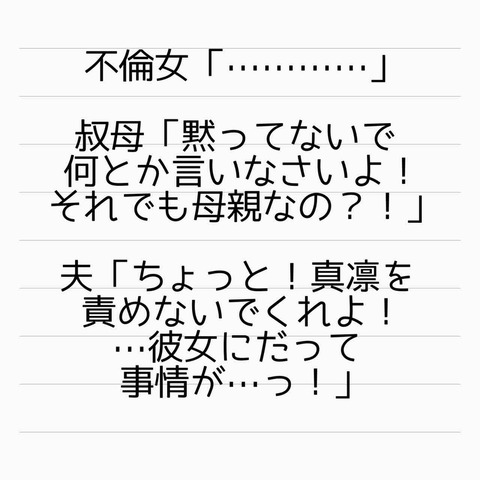 不倫女「…………」
叔母「黙ってないで
何とか言いなさいよ!
それでも母親なの?!」
夫「ちょっと!真凛を
責めないでくれよ!
…彼女にだって
事情が…っ!」